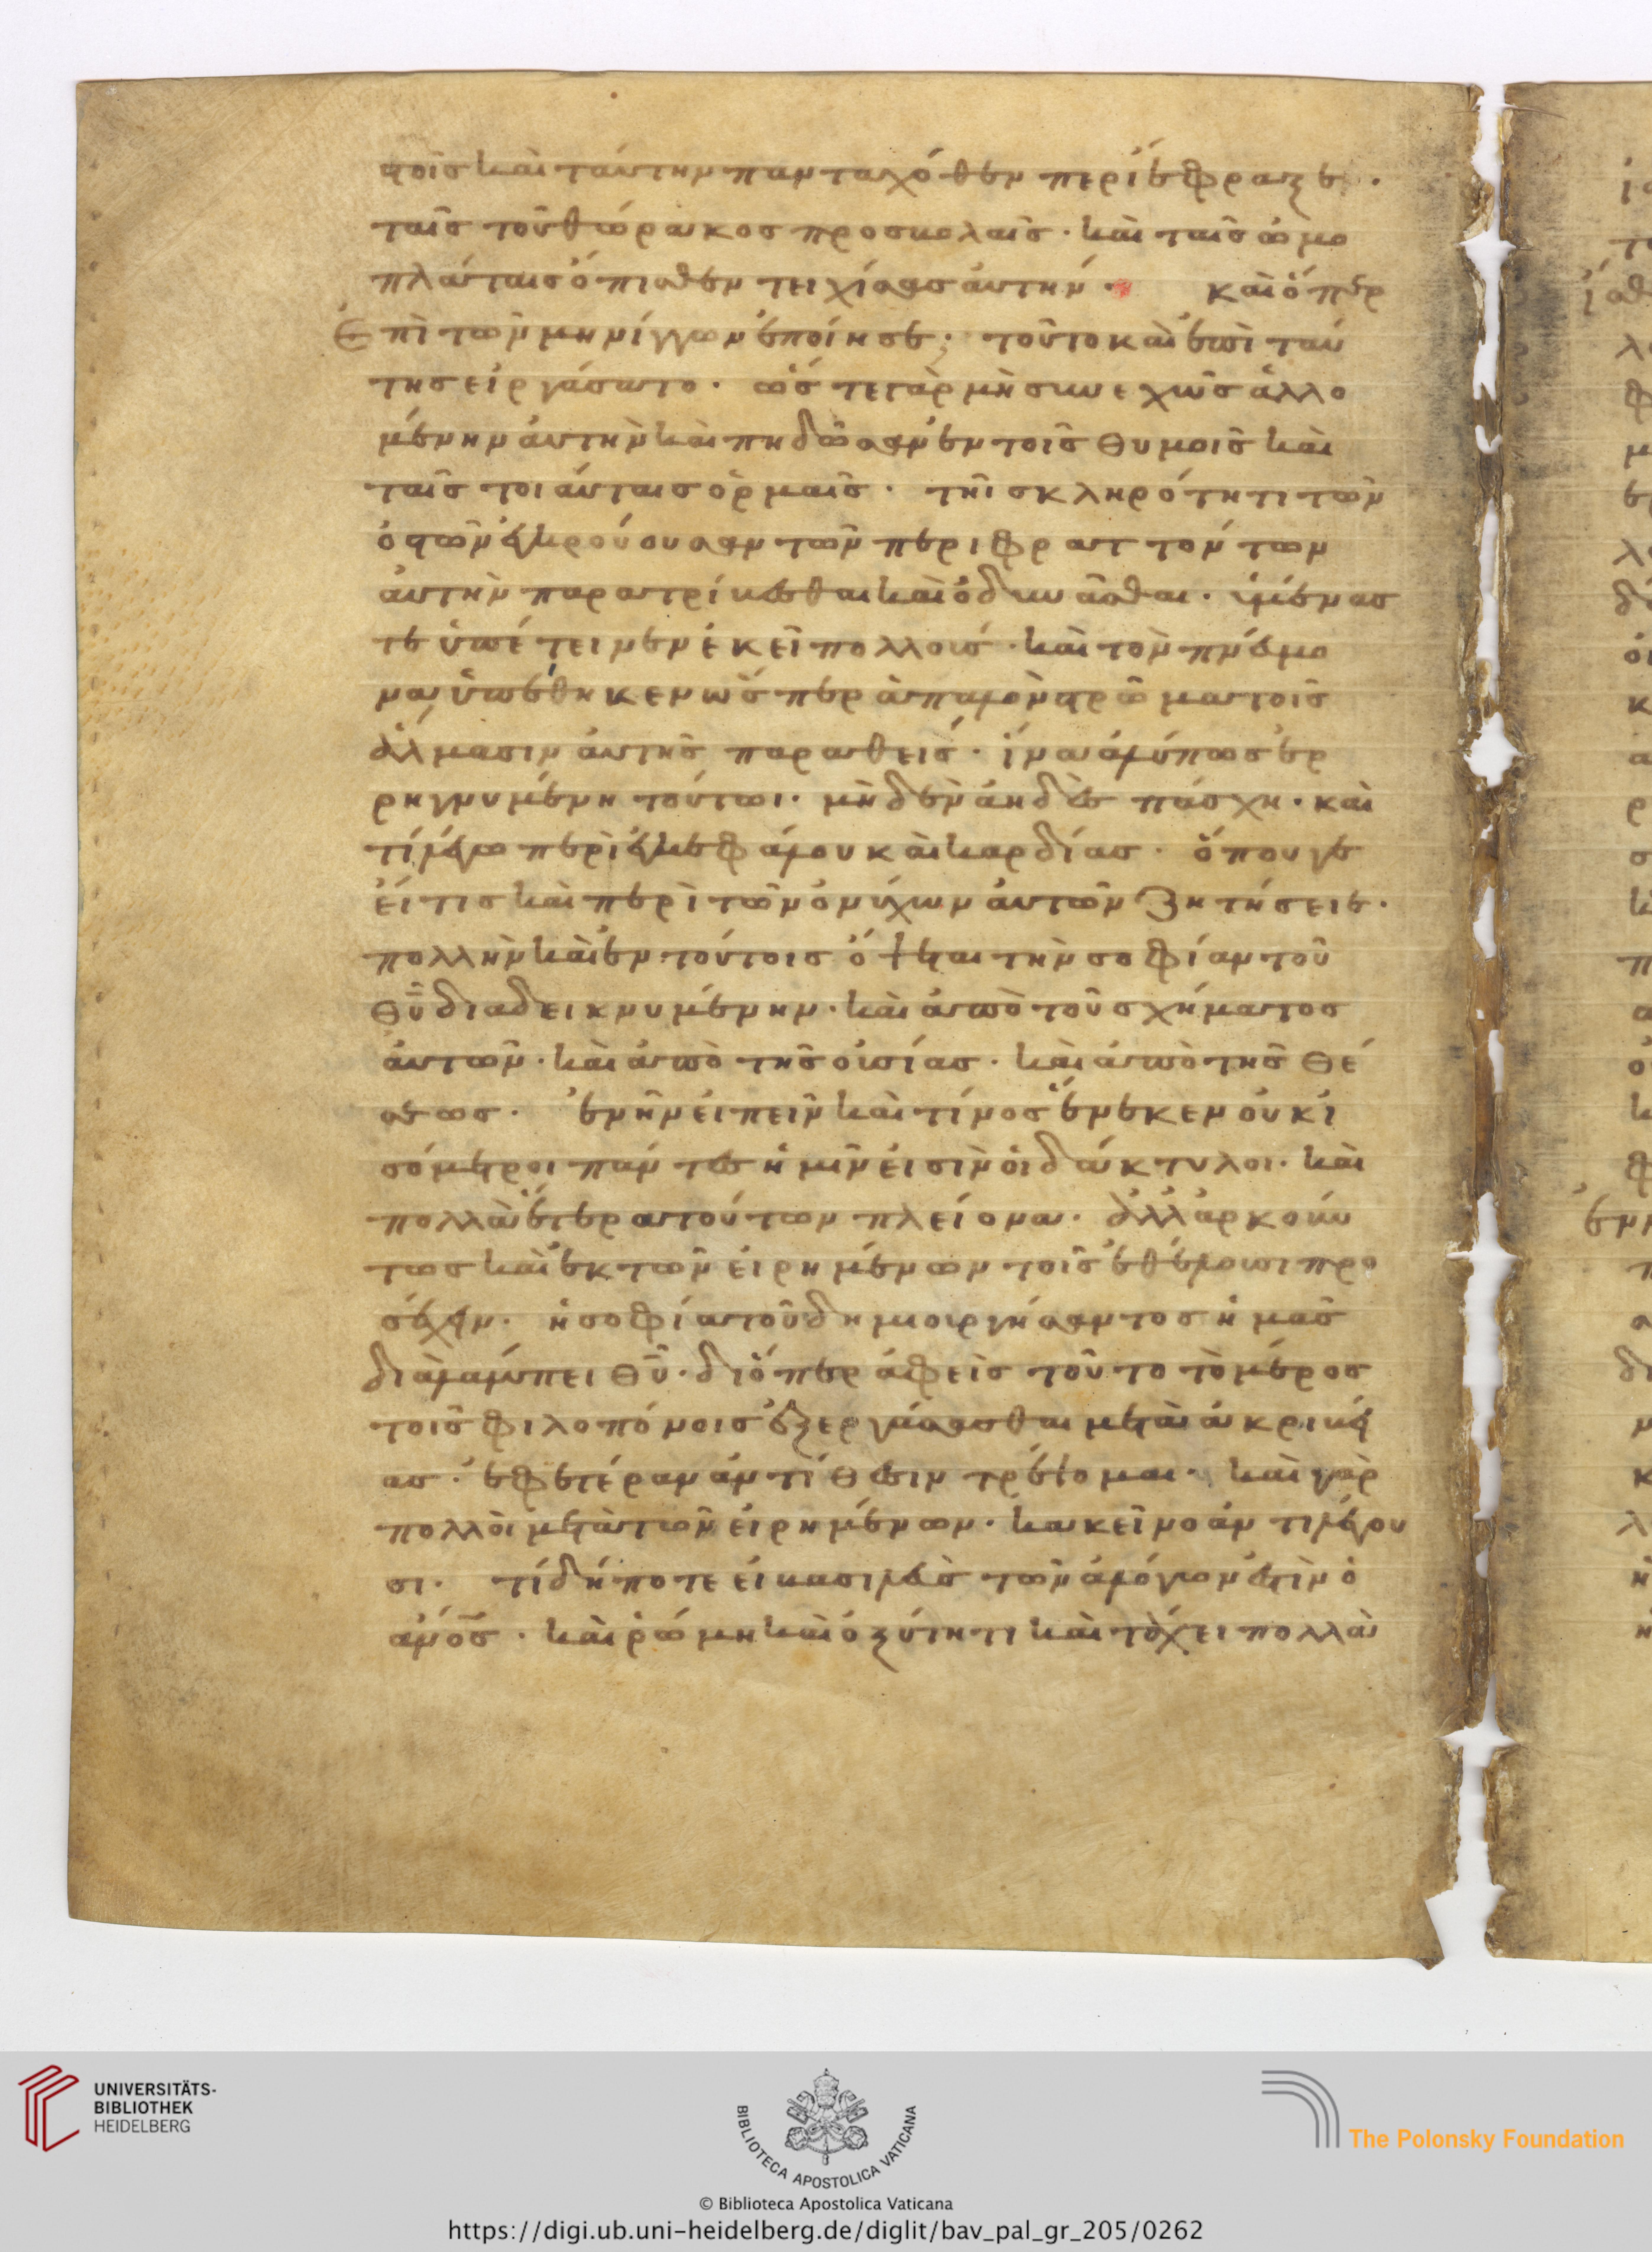 στοῖς καὶ ταύτην πανταχόθεν περιέφραξε·
ταῖς τοῦ θώρακος προσβολαῖς· καὶ ταῖς ὠμο
πλάταις ὄπισθεν τειχίσας αὐτήν· καὶ ὅπερ
Ἐπὶ τῶν μηνίγγων ἐποίησε· τοῦτο καὶ ἐπὶ ταύ
της εἰργάσατο· ὥστε γὰρ μὴ συνεχῶς ἁλλο
μένην αὐτὴν καὶ πηδῶσαν ἐν τοῖς θυμοῖς καὶ
ταῖς τοιαύταις ὁρμαῖς· τῆι σκληρότητι τῶν
ὀστῶν ἐγκρούουσαν τῶν περιφραττόντων
αὐτὴν παρατρίβεσθαι καὶ ὀδυνᾶσθαι· ὑμένας
τε ὑπέτεινεν ἐκεῖ πολλούς· καὶ τὸν πνεύμο
να ὑπέθηκεν ὥσπερ ἁπαλὸν στρῶμα τοῖς
ἅλμασιν αὐτῆς παραθείς· ἵνα ἀλύπως ἐρ
ρηγνυμένη τούτωι· μηδὲν ἀηδὲς πάσχη· καὶ
τί λέγω περὶ ἐγκεφάλου καὶ καρδίας· ὅπου γε
εἴ τις καὶ περὶ τῶν ὀνύχων αὐτῶν ζητήσειε·
πολλὴν καὶ ἐν τούτοις ὄψεται τὴν σοφίαν τοῦ
θῦ διαδεικνυμένην· καὶ ἀπὸ τοῦ σχήματος
αὐτῶν· καὶ ἀπὸ τῆς οὐσίας· καὶ ἀπὸ τῆς θέ
σεως· ἐνῆν εἰπεῖν καὶ τίνος ἕνεκεν οὐκ ἰ
σόμετροι πάντες ἡμῖν εἰσὶν οἱ δάκτυλοι· καὶ
πολλὰ ἕτερα τούτων πλείονα· ἀλλ' ἀρκούν
τως καὶ ἐκ τῶν εἰρημένων τοῖς ἐθέλουσι προ
σέχειν· ἡ σοφία τοῦ δημιουργήσαντος ἡμᾶς
διαλάμπει θῦ· διόπερ ἀφεὶς τοῦτο τὸ μέρος
τοῖς φιλοπόνοις ἐξεργάσασθαι μετὰ ἀκριβεί
ας· ἐφ' ἑτέραν ἀντίθεσιν τρέψομαι· καὶ γὰρ
πολλοὶ μετὰ τῶν εἰρημένων· κἀκεῖνο ἀντιλέγου
σι· τί δήποτε εἰ βασιλεὺς τῶν ἀλόγων ἐστὶν ὁ
ἀνος· καὶ ῥώμη καὶ ὀξύτητι καὶ τάχει πολλὰ
UNIVERSITÄTS-
BIBLIOTHEK
HEIDELBERG
BIBLIOTECA APOSTOLICA VATICANA
The Polonsky Foundation
© Biblioteca Apostolica Vaticana
https://digi.ub.uni-heidelberg.de/diglit/bav_pal_gr_205/0262